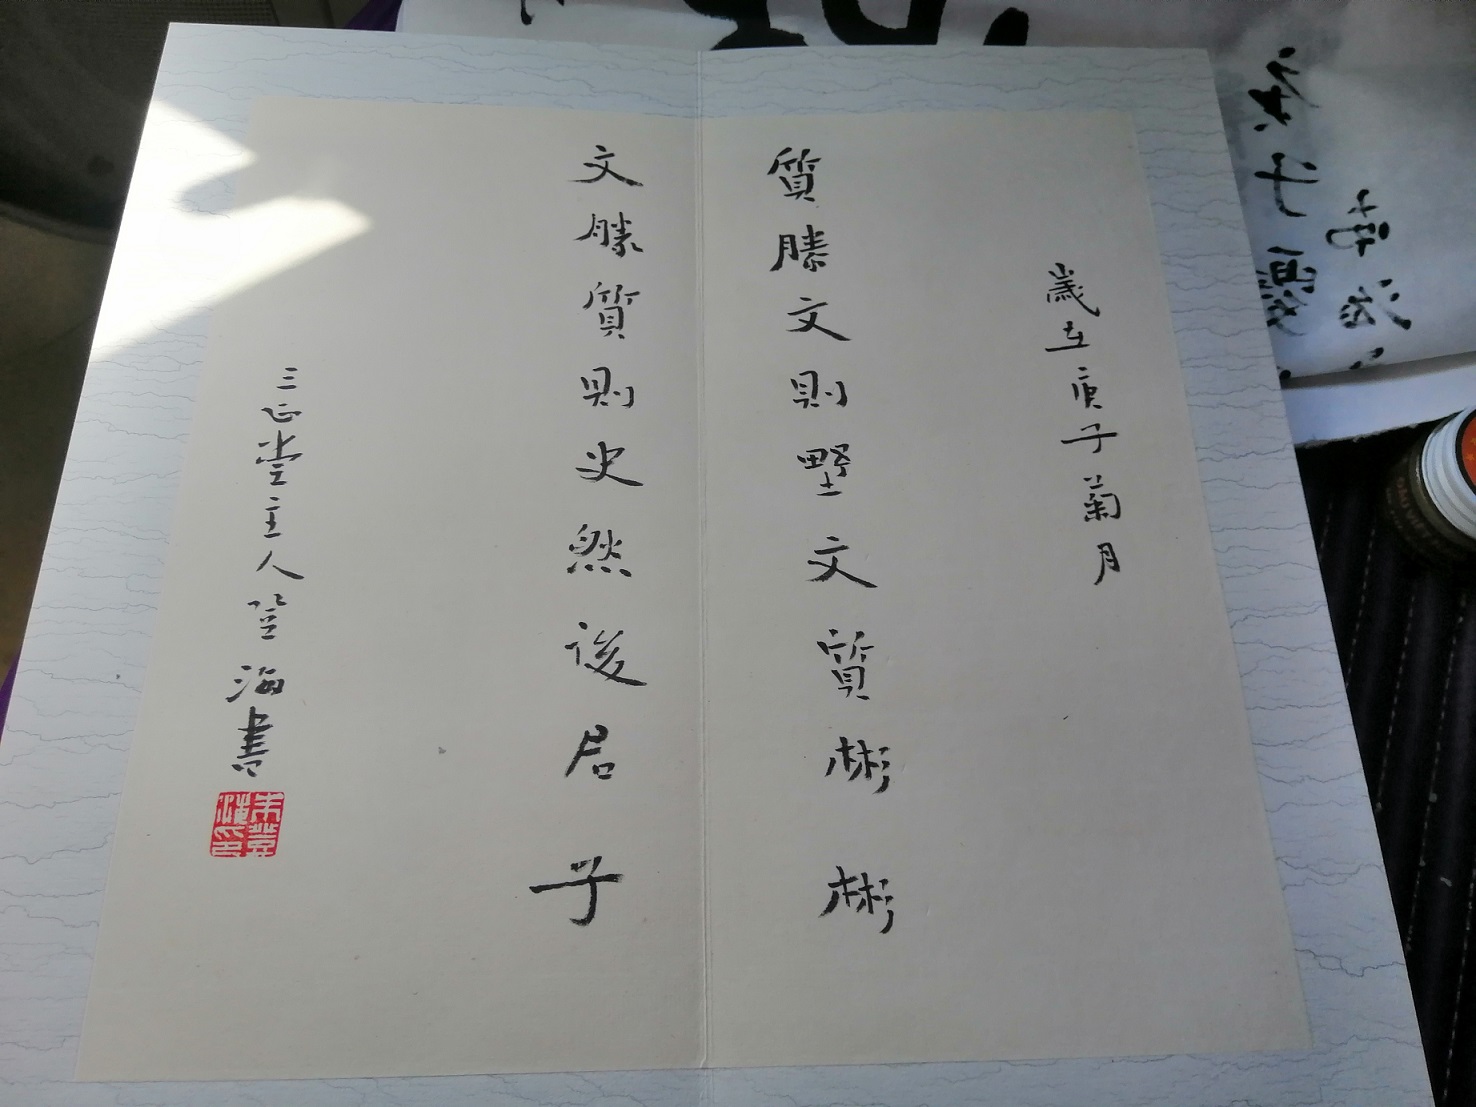 歲在庚子菊月
質勝文則野文質彬彬
文勝質則史然後君子
三正堂主人登海書